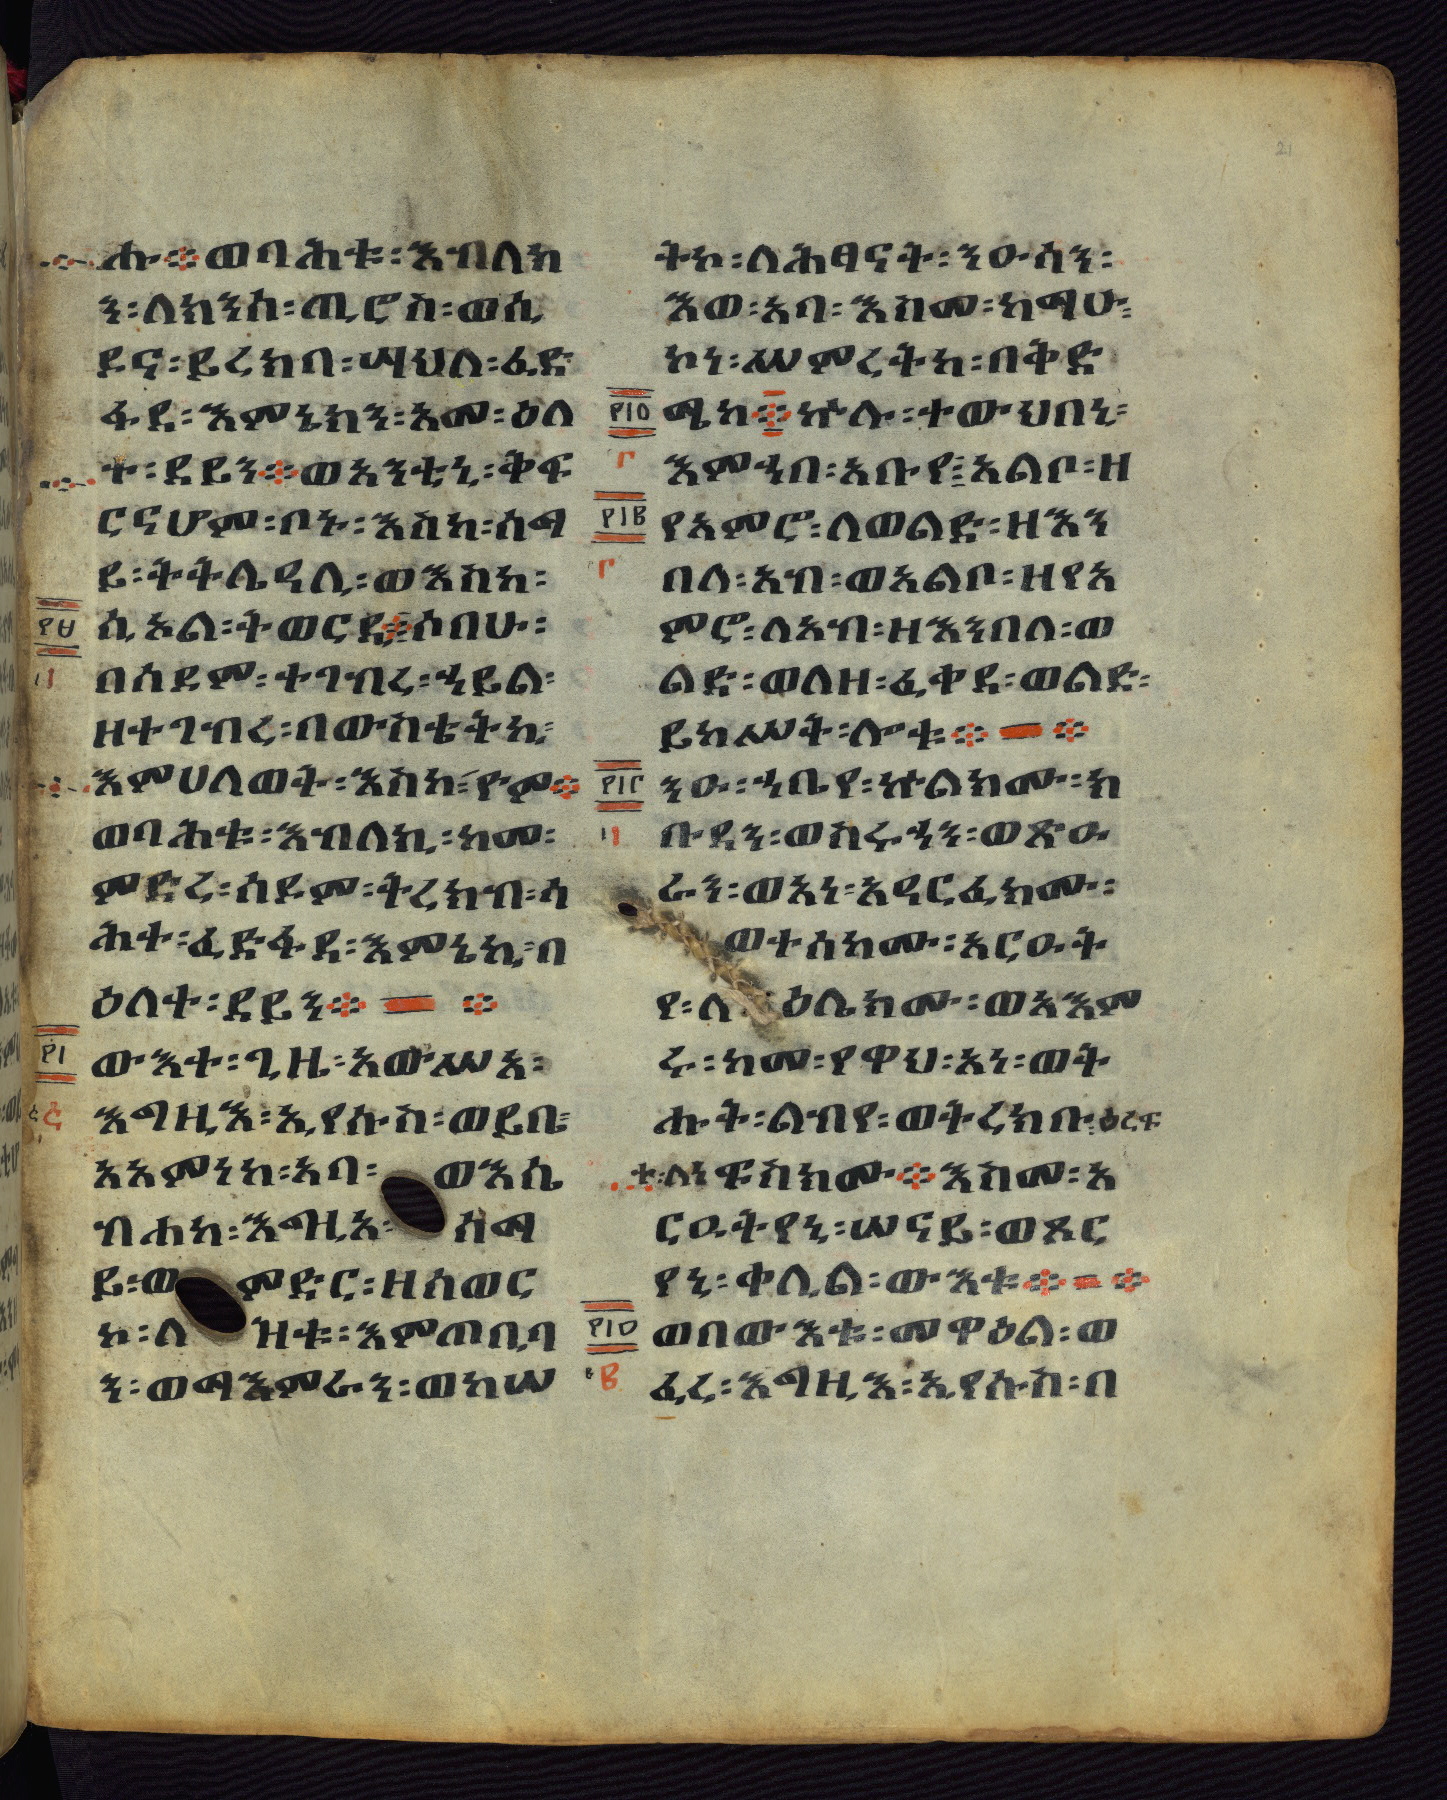 ሑ፨ወባሕቱ፡እብለክ
ን፡ለክንስ፡ጢሮስ፡ወሲ
ዶና፡ይረክባ፡ሣህለ፡ፈድ
ፋደ፡እምኔክን፡አመ፡ዕለ
ተ፡ደይን፨ወአንቲኒ፡ቅፍ
ርናሆም፡ቦኑ፡እስከ፡ሰማ
ይ፡ትትሌዓሊ፡ወእስከ፡
ሲኦል፡ትወርዲ፨ሶበሁ፡
፻፰
በሰዶም፡ተገብረ፡ኀይል፡
ዘተገብረ፡በውስቴትኪ፡
እምሀለወት፡እስከ፡ዮም፨
ወባሕቱ፡እብለኪ፡ከመ፡
ምድረ፡ሰዶም፡ትረክብ፡ሳ
ሕተ፡ፈድፋደ፡እምኔኪ፡በ
ዕለተ፡ደይን፨ ፨
፻፲
ውእተ፡ጊዜ፡አውሥአ፡
እግዚእ፡ኢየሱስ፡ወይቤ፡
አአምነከ፡አባ፡ወእሴ
ብሐከ፡እግዚአ፡ሰማ
ይ፡ወምድር፡ዘሰወር
ከ፡ለዝቱ፡እምጠቢባ
ን፡ወማእምራን፡ወከሠ
ትኮ፡ለሕፃናት፡ንዑሳን፡
እወ፡አባ፡እስመ፡ከማሁ፡
ኮነ፡ሥምረትከ፡በቅድ
፻፲፩
ሜከ፨ኵሉ፡ተውህበኒ፡
፫
እምኀበ፡አቡየ፡አልቦ፡ዘ
፻፲፪
የአምሮ፡ለወልድ፡ዘእን
፫
በለ፡አብ፡ወአልቦ፡ዘየአ
ምሮ፡ለአብ፡ዘእንበለ፡ወ
ልድ፡ወለዘ፡ፈቀደ፡ወልድ፡
ይክሥት፡ሎቱ፨ ፨
፻፲፫
ንዑ፡ኀቤየ፡ኵልክሙ፡ክ
ቡዳን፡ወስሩሓን፡ወጽዑ
ራን፡ወአነ፡አዓርፈክሙ፡
ወተሰከሙ፡አርዑት
የ፡ላዕሌክሙ፡ወአእም
ሩ፡ከመ፡የዋህ፡አነ፡ወት
ሑት፡ልብየ፡ወትረክቡ፡ዕረፍ
ተ፡ለነፍስክሙ፨እስመ፡አ
ርዑትየኒ፡ሠናይ፡ወጾር
የኒ፡ቀሊል፡ውእቱ፨ ፨
፻፲፬
ወበውእቱ፡መዋዕል፡ወ
፪
ፈረ፡እግዚእ፡ኢየሱስ፡በ
21